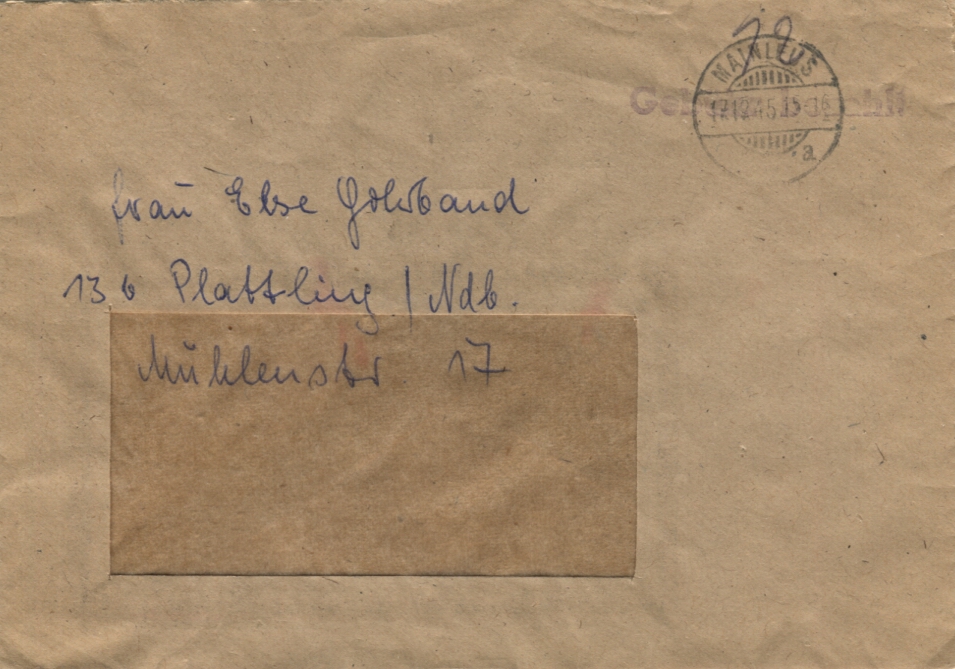 12
MAINLEUS
17.12.45.15-16
a
Gebühr bezahlt
Frau Else Gohrband
13b Plattling / Ndb.
Mühlenstr 17